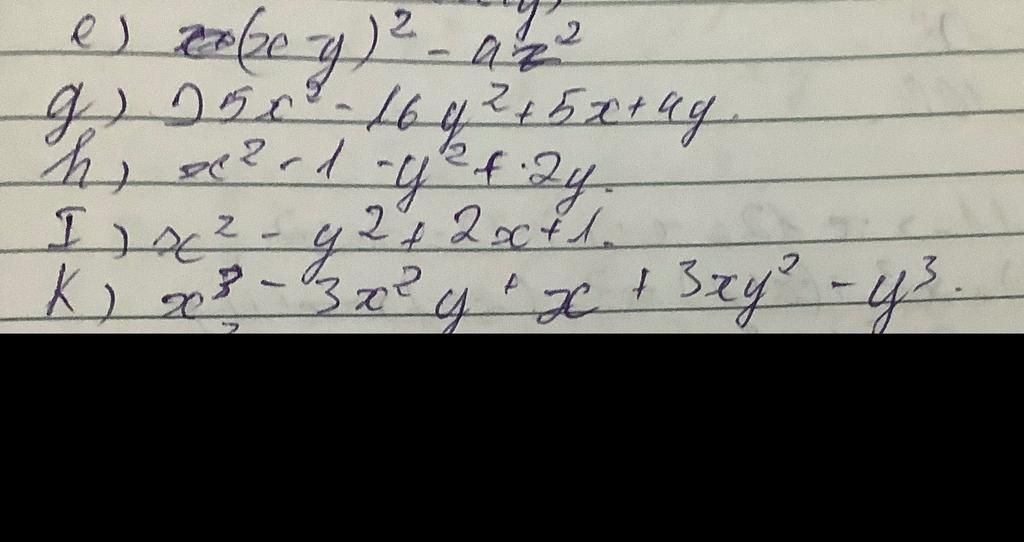 e) (x-y)² - 4z²
g) 25x² - 16y² + 5x + 4y.
h) x² - 1 - y² + 2y.
I) x² - y² + 2x + 1.
K) x³ - 3x²y + x + 3xy² - y³.